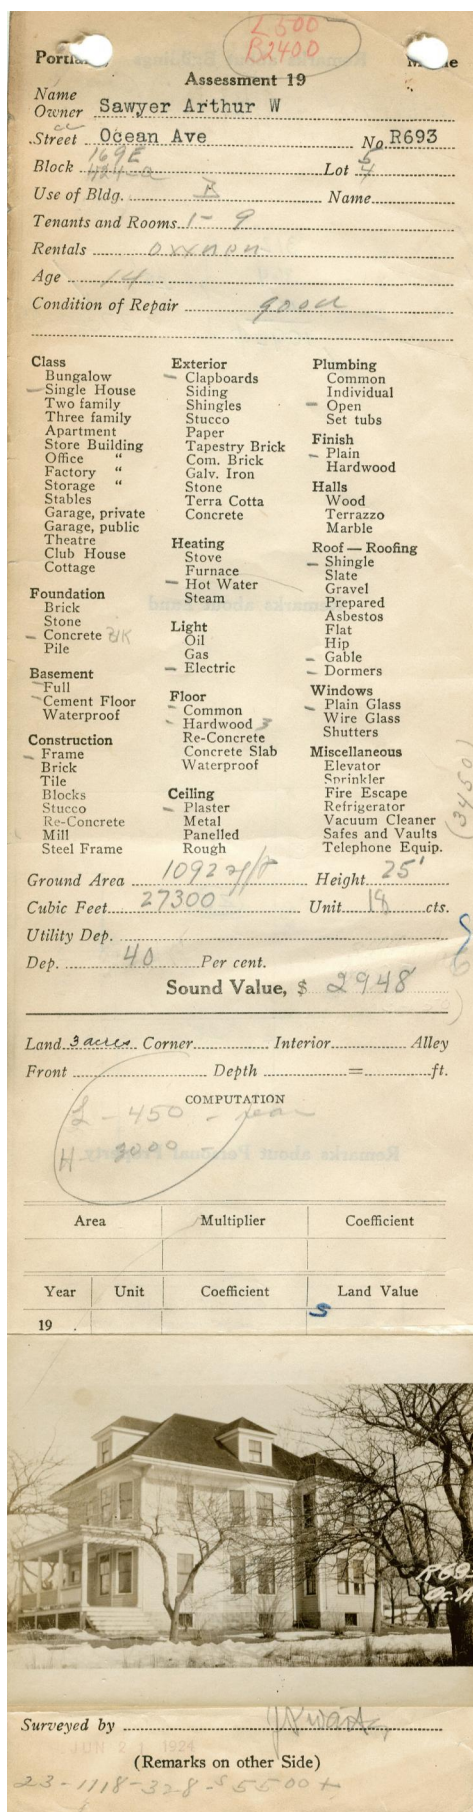 L 500
B 2400
Portland, Maine
Assessment 19
Name
Owner Sawyer Arthur W
Street Ocean Ave No R693
Block 169E Lot 5
424-a 4
Use of Bldg. Name
Tenants and Rooms 1 - 9
Rentals owner
Age 14
Condition of Repair good
Class
Bungalow
Single House
Two family
Three family
Apartment
Store Building
Office "
Factory "
Storage "
Stables
Garage, private
Garage, public
Theatre
Club House
Cottage
Foundation
Brick
Stone
Concrete
Pile
Basement
Full
Cement Floor
Waterproof
Construction
Frame
Brick
Tile
Blocks
Stucco
Re-Concrete
Mill
Steel Frame
Exterior
Clapboards
Siding
Shingles
Stucco
Paper
Tapestry Brick
Com. Brick
Galv. Iron
Stone
Terra Cotta
Concrete
Heating
Stove
Furnace
Hot Water
Steam
Light
Oil
Gas
Electric
Floor
Common
Hardwood 3
Re-Concrete
Concrete Slab
Waterproof
Ceiling
Plaster
Metal
Panelled
Rough
Plumbing
Common
Individual
Open
Set tubs
Finish
Plain
Hardwood
Halls
Wood
Terrazzo
Marble
Roof — Roofing
Shingle
Slate
Gravel
Prepared
Asbestos
Flat
Hip
Gable
Dormers
Windows
Plain Glass
Wire Glass
Shutters
Miscellaneous
Elevator
Sprinkler
Fire Escape
Refrigerator
Vacuum Cleaner
Safes and Vaults
Telephone Equip.
(3450)
Ground Area 1092 Height 25'
Cubic Feet 27300 Unit 18 cts.
Utility Dep.
Dep. 40 Per cent.
Sound Value, $ 2948
Land 3 acres Corner Interior Alley
Front Depth = ft.
COMPUTATION
L - 450 - rear
H 3000 -
Area Multiplier Coefficient
Year Unit Coefficient Land Value
19 . S
R69
Oc. A
Surveyed by
JUN 21 1924
(Remarks on other Side)
23-1118-328-$5500+